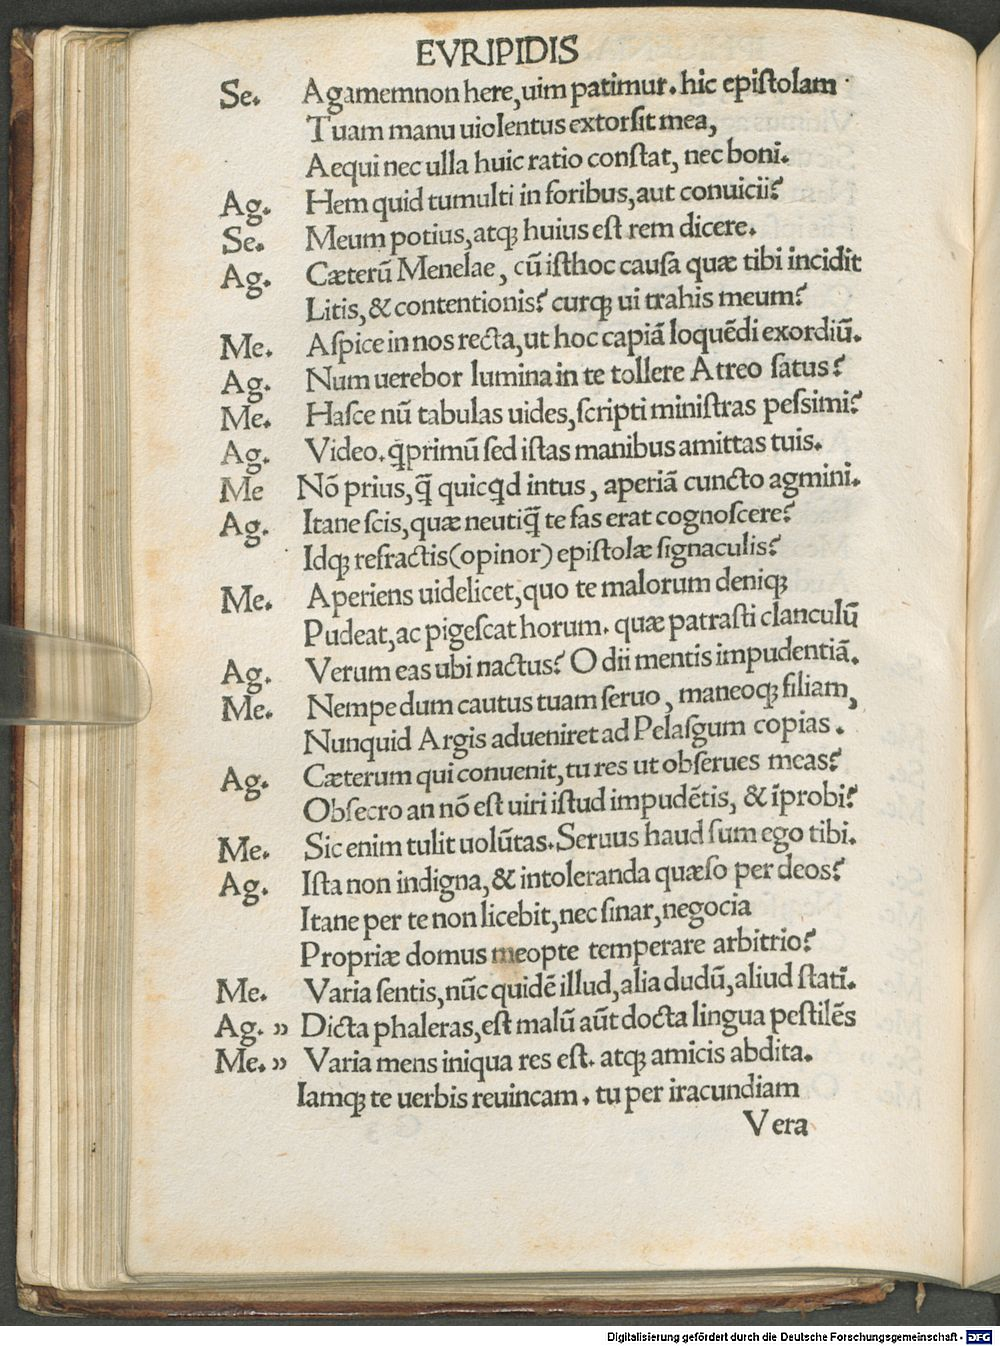 EVRIPIDIS
Se. Agamemnon here, uim patimur. hic epiſtolam
Tuam manu uiolentus extorſit mea,
Aequi nec ulla huic ratio conſtat, nec boni.
Ag. Hem quid tumulti in foribus, aut conuicii?
Se. Meum potius, atqꝫ huius eſt rem dicere.
Ag. Cæterũ Menelae, cũ iſthoc cauſa quæ tibi incidit
Litis, & contentionis? curqꝫ ui trahis meum?
Me. Aſpice in nos recta, ut hoc capiã loquẽdi exordiũ.
Ag. Num uerebor lumina in te tollere Atreo ſatus?
Me. Haſce nũ tabulas uides, ſcripti miniſtras peſsimi?
Ag. Video. q̃primũ ſed iſtas manibus amittas tuis.
Me Nõ prius, q̃ quicqd intus, aperiã cuncto agmini.
Ag. Itane ſcis, quæ neutiq̃ te fas erat cognoſcere?
Idqꝫ refractis (opinor) epiſtolæ ſignaculis?
Me. Aperiens uidelicet, quo te malorum deniqꝫ
Pudeat, ac pigeſcat horum. quæ patraſti clanculũ
Ag. Verum eas ubi nactus? O dii mentis impudentiã.
Me. Nempe dum cautus tuam ſeruo, maneoqꝫ filiam,
Nunquid Argis adueniret ad Pelaſgum copias.
Ag. Cæterum qui conuenit, tu res ut obſerues meas?
Obſecro an nõ eſt uiri iſtud impudẽtis, & ĩprobi?
Me. Sic enim tulit uolũtas. Seruus haud ſum ego tibi.
Ag. Iſta non indigna, & intoleranda quæſo per deos?
Itane per te non licebit, nec ſinar, negocia
Propriæ domus meopte temperare arbitrio?
Me. Varia ſentis, nũc quidẽ illud, alia dudũ, aliud ſtatĩ.
Ag. » Dicta phaleras, eſt malũ aũt docta lingua peſtilẽs
Me. » Varia mens iniqua res eſt. atqꝫ amicis abdita.
Iamqꝫ te uerbis reuincam. tu per iracundiam
Vera
Digitalisierung gefördert durch die Deutsche Forschungsgemeinschaft - DFG